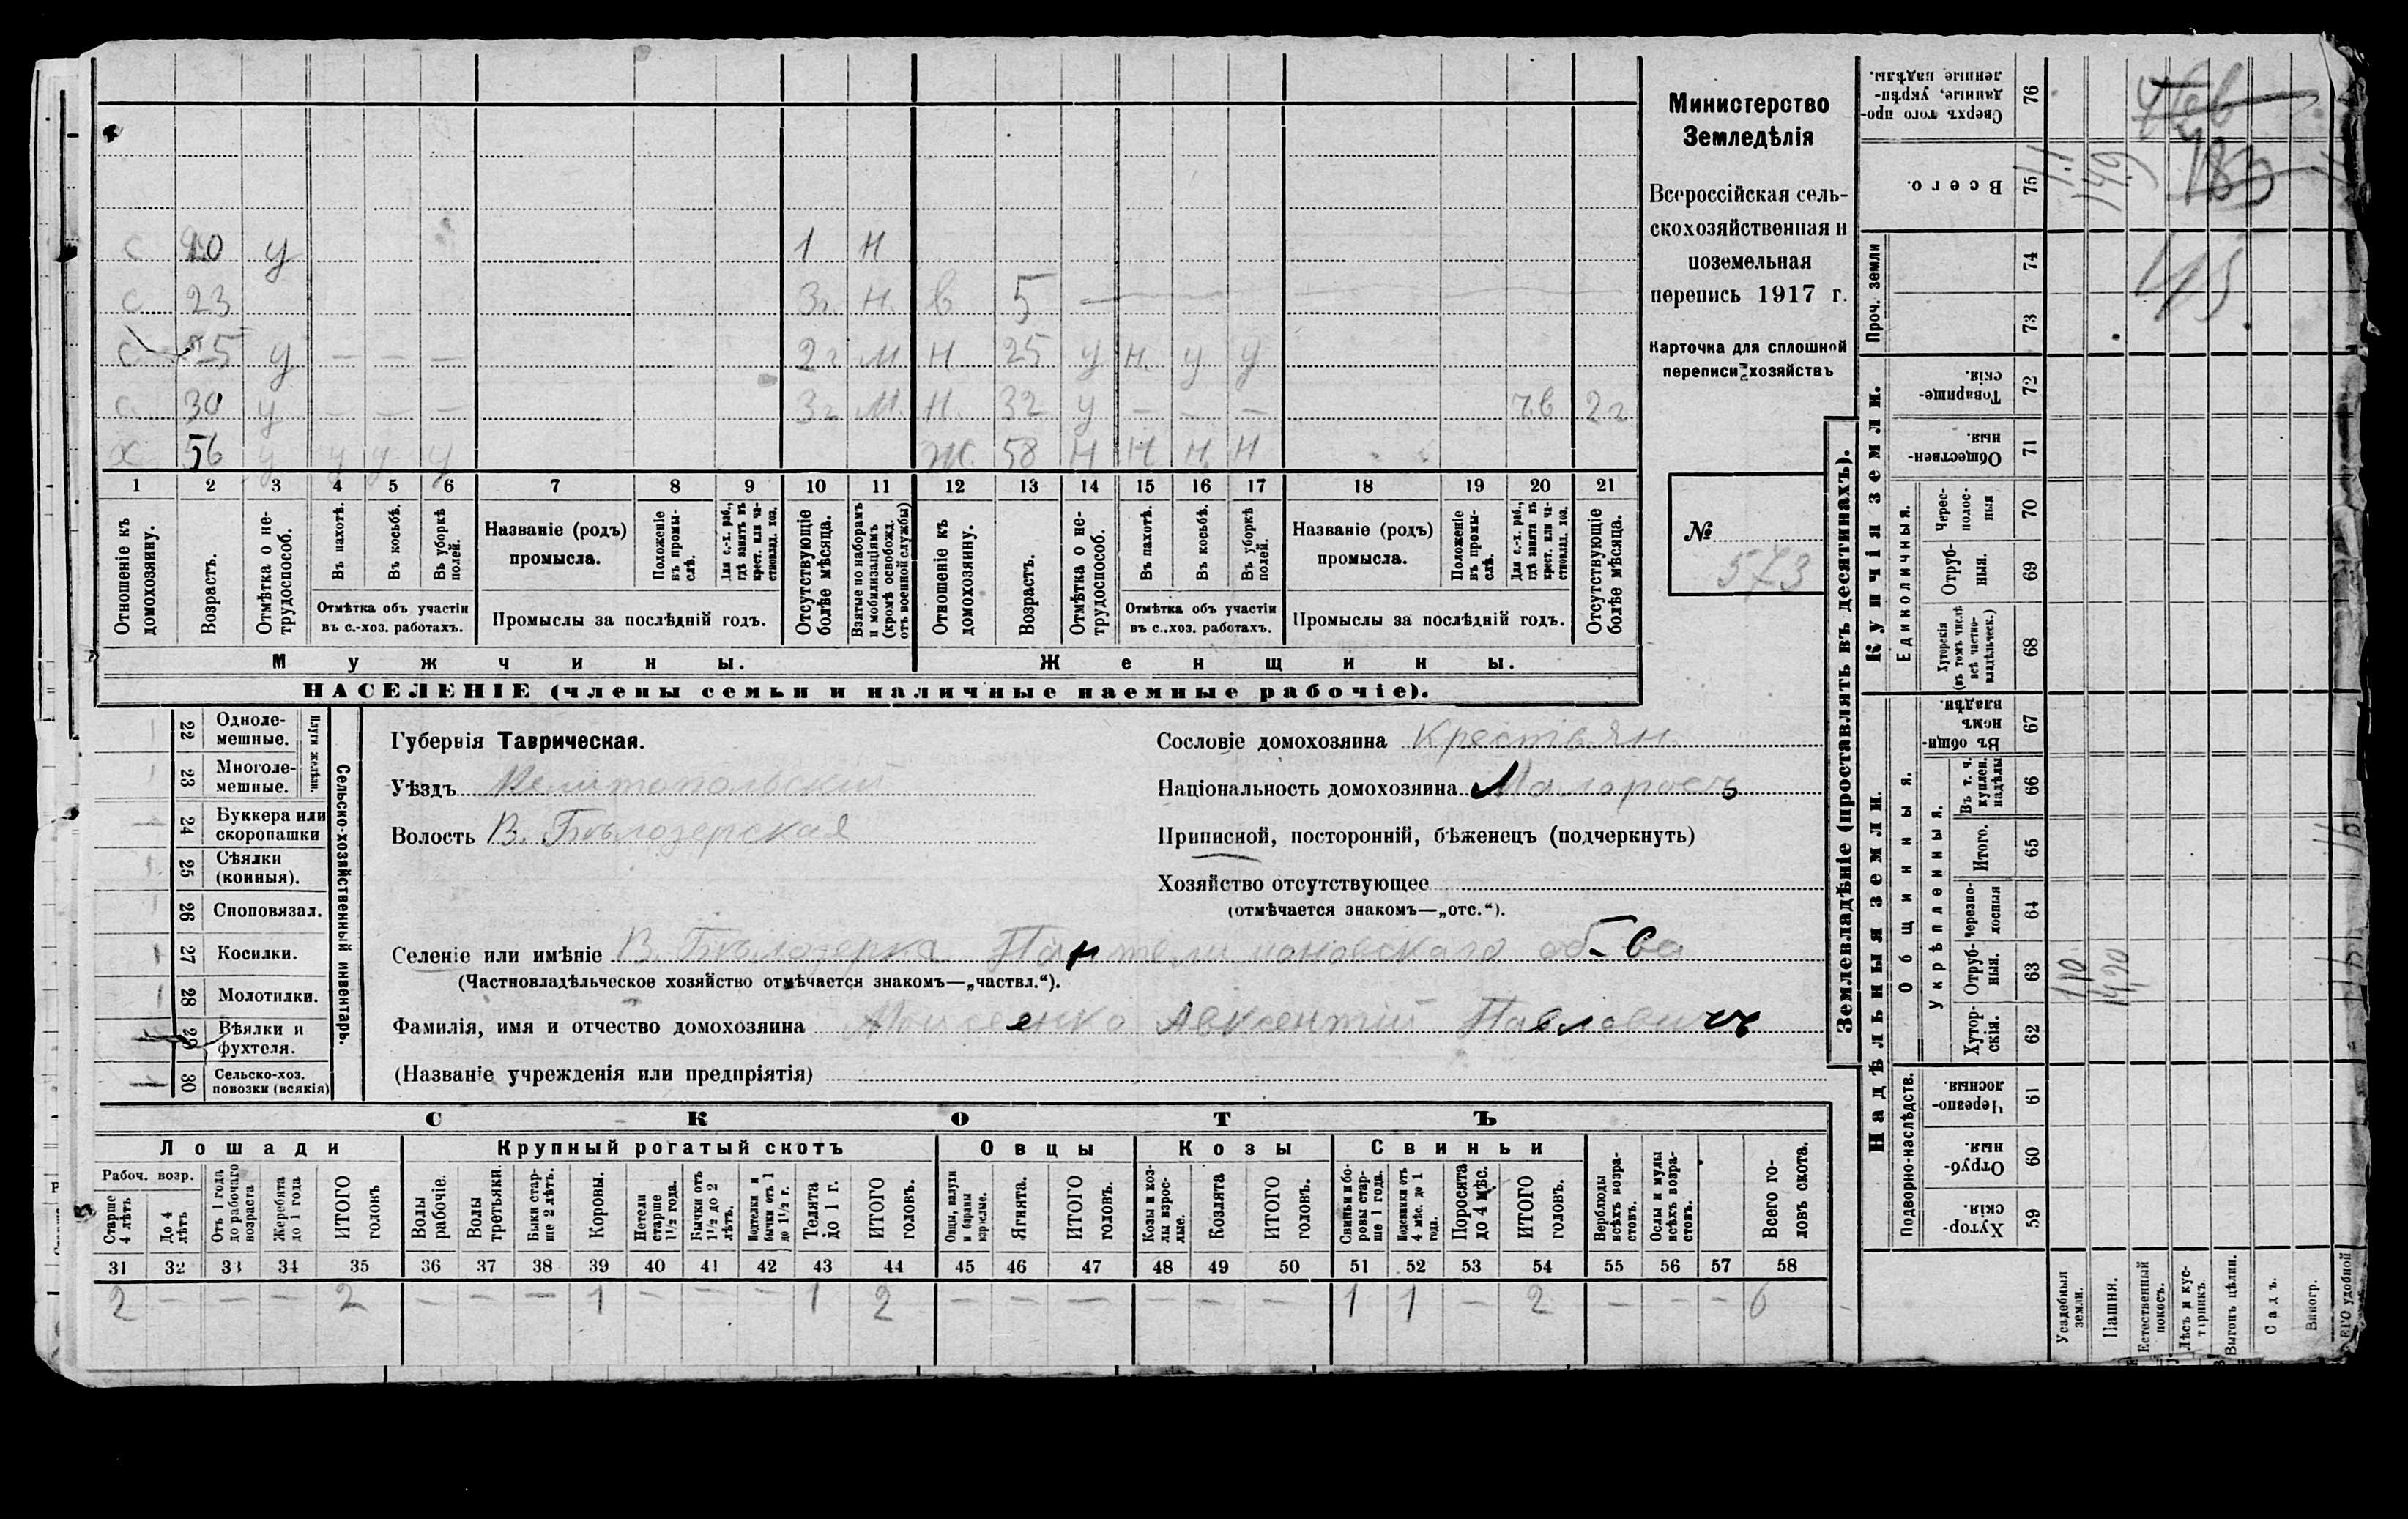 с 20 у 1 н
с 23 3г. н. в 5
с 25 у — — — 2г м н 25 у н. у у
с. 30 у — — — 3г м. н. 32 у — — — 2г
х 56 у у у у ж. 58 н н н н
1 2 3 4 5 6 7 8 9 10 11 12 13 14 15 16 17 18 19 20 21
Отношеніе къ домохозяину.
Возрастъ.
Отмѣтка о не-
трудоспособ.
Въ пахотѣ.
Въ косьбѣ.
Въ уборкѣ полей.
Отмѣтка объ участіи
въ с.-хоз. работахъ.
Названіе (родъ)
промысла.
Положеніе въ промы-
слѣ.
Для с.-х. раб., гдѣ занятъ въ крест. или ча-
стновлад. хоз.
Промыслы за послѣдній годъ.
Отсутствующіе болѣе мѣсяца.
Взятые по наборамъ и мобилизаціямъ (кромѣ освобожд. отъ военной службы)
Отношеніе къ домохозяину.
Возрастъ.
Отмѣтка о не-
трудоспособ.
Въ пахотѣ.
Въ косьбѣ.
Въ уборкѣ полей.
Отмѣтка объ участіи
въ с.-хоз. работахъ.
Названіе (родъ)
промысла.
Положеніе въ промы-
слѣ.
Для с.-х. раб., гдѣ занятъ въ крест. или ча-
стновлад. хоз.
Промыслы за послѣдній годъ.
Отсутствующіе болѣе мѣсяца.
Мужчины.
Женщины.
НАСЕЛЕНІЕ (члены семьи и наличные наемные рабочіе).
Министерство
Земледѣлія
Всероссійская сель-
скохозяйственная и
поземельная
перепись 1917 г.
Карточка для сплошной
переписи хозяйствъ
№
573
22 Одноле-
мешные.
23 Многоле-
мешные.
Плуги желѣзн.
24 Буккера или
скоропашки
25 Сѣялки
(конныя).
26 Сноповязал.
27 Косилки.
28 Молотилки.
29 Вѣялки и
фухтеля.
30 Сельско-хоз.
повозки (всякія)
Сельско-хозяйственный инвентарь.
Губернія Таврическая.
Уѣздъ Мелитопольскій
Волость В. Бѣлозерская
Сословіе домохозяина Крестьян
Національность домохозяина Малороссъ
Приписной, посторонній, бѣженецъ (подчеркнуть)
Хозяйство отсутствующее
(отмѣчается знакомъ—„отс.“).
Селеніе или имѣніе В. Бѣлозерка Пантелимоновскаго об-ва
(Частновладѣльческое хозяйство отмѣчается знакомъ—„частвл.“).
Фамилія, имя и отчество домохозяина Моисеенко Авксентій Павловичъ
(Названіе учрежденія или предпріятія)
СКОТЪ
Лошади
Крупный рогатый скотъ
Овцы
Козы
Свиньи
Рабоч. возр.
Старше 4 лѣтъ
До 4 лѣтъ
Отъ 1 года до рабочаго возраста
Жеребята до 1 года
ИТОГО головъ
Волы рабочіе.
Волы третьяки.
Быки стар-
ше 2 лѣтъ.
Коровы.
Нетели старше 1½ года.
Бычки отъ 1½ до 2 лѣтъ.
Нетелки и бычки отъ 1 до 1½ г.
Телята до 1 г.
ИТОГО головъ.
Овцы, валухи и бараны взрослые.
Ягнята.
ИТОГО головъ.
Козы и коз-
лы взрос-
лые.
Козлята
ИТОГО головъ.
Свиньи и бо-
ровы стар-
ше 1 года.
Подсвинки отъ 4 мѣс. до 1 года.
Поросята до 4 мѣс.
ИТОГО головъ.
Верблюды всѣхъ возра-
стовъ.
Ослы и мулы всѣхъ возра-
стовъ.
Всего го-
ловъ скота.
31 32 33 34 35 36 37 38 39 40 41 42 43 44 45 46 47 48 49 50 51 52 53 54 55 56 57 58
2 — — — 2 — — — 1 — — — 1 2 — — — — — — 1 1 — 2 — — — 6
Землевладѣніе (проставлять въ десятинахъ).
Надѣльныя земли.
Купчія земли.
Проч. земли
Подворно-наслѣдств.
Общинныя.
Укрѣпленныя.
Единоличныя.
Хутор-
скія. 59
Отруб-
ныя. 60
Черезпо-
лосныя 61
Хутор-
скія. 62
Отруб-
ныя. 63
Черезпо-
лосныя 64
Итого. 65
Въ т. ч. куплен. надѣлы 66
Въ общин-
номъ владѣн. 67
Хуторскія (въ томъ числѣ всѣ частно-
владѣльческ.) 68
Отруб-
ныя. 69
Черес-
полос-
ныя 70
Обществен-
ныя. 71
Товарище-
скія. 72
73
74
Всего. 75
Сверхъ того про-
данные, укрѣп-
ленные надѣлы. 76
Усадебныя земли. 1,10 1.1
Пашня. 14,90 14.9
Естественный покосъ.
Лѣсъ и кус-
тарникъ
Выгонъ цѣлин.
Садъ.
Виногр.
удобной
183